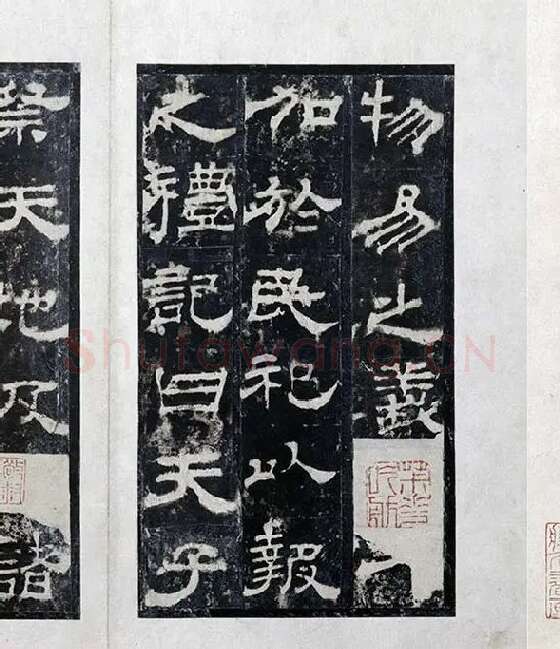 物易之義
加於民祀以報
之禮記曰天子
祭天地及
諸
Shufawang.CN